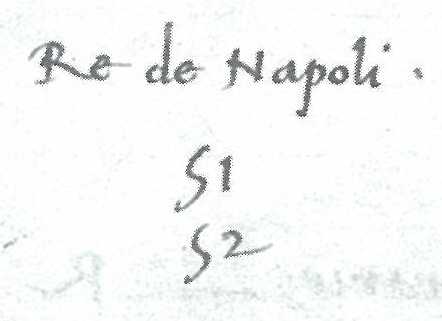 Re de Napoli.
51
52